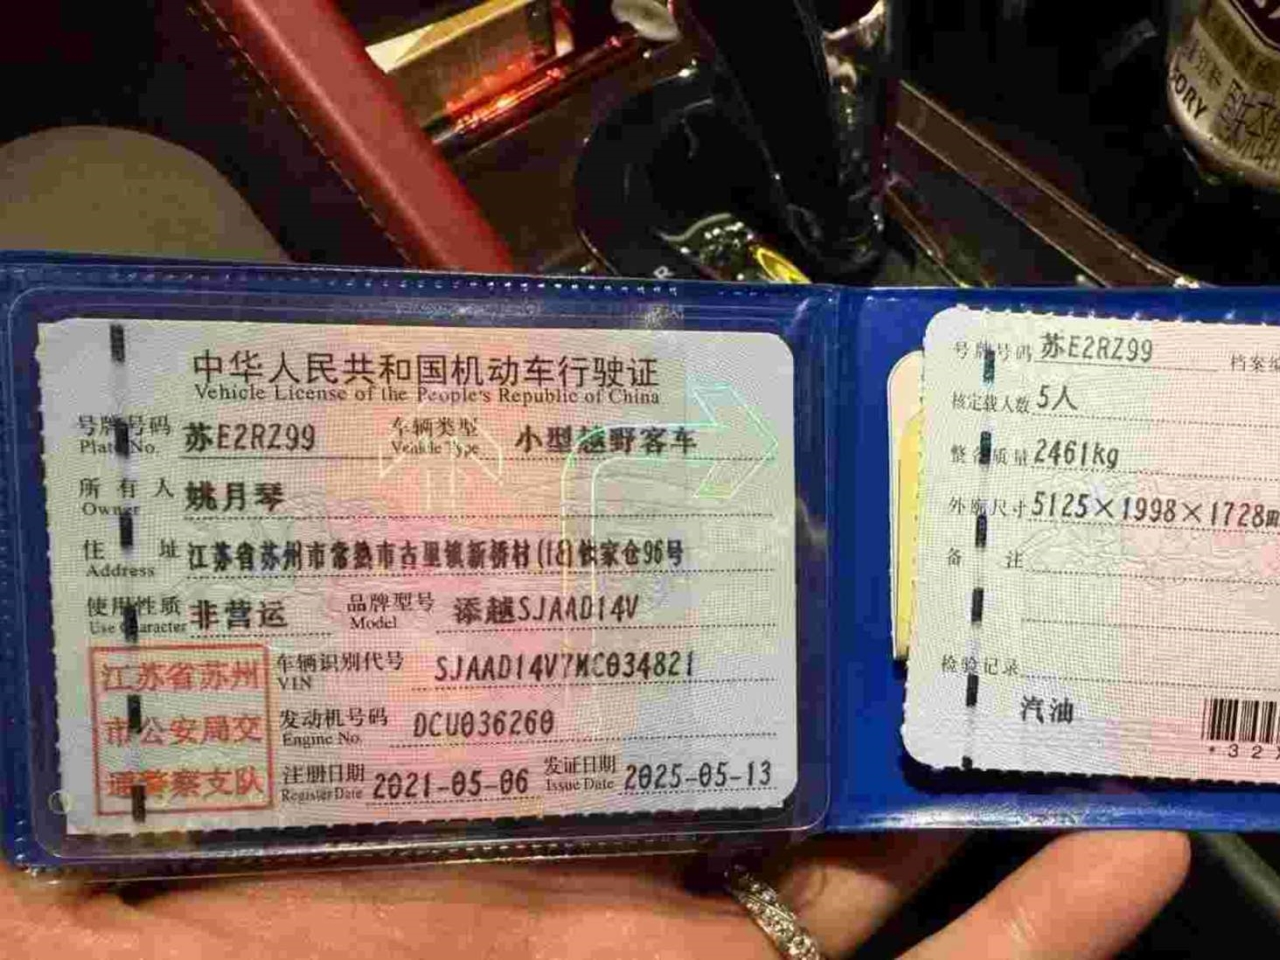 中华人民共和国机动车行驶证
Vehicle License of the People's Republic of China
号牌号码 苏E2RZ99 车辆类型 小型越野客车
Plate No. Vehicle Type
所有人 姚月琴
Owner
住址 江苏省苏州市常熟市古里镇新桥村(18)铁家仓96号
Address
使用性质 非营运 品牌型号 添越SJAAD14V
Use Character Model
江苏省苏州
市公安局交
通警察支队
车辆识别代号 SJAAD14V7MC034821
VIN
发动机号码 DCU036260
Engine No.
注册日期 2021-05-06 发证日期 2025-05-13
Register Date Issue Date
号牌号码 苏E2RZ99 档案编
核定载人数 5人
整备质量 2461kg
外廓尺寸 5125×1998×1728
备注
检验记录
汽油
*32
ORY